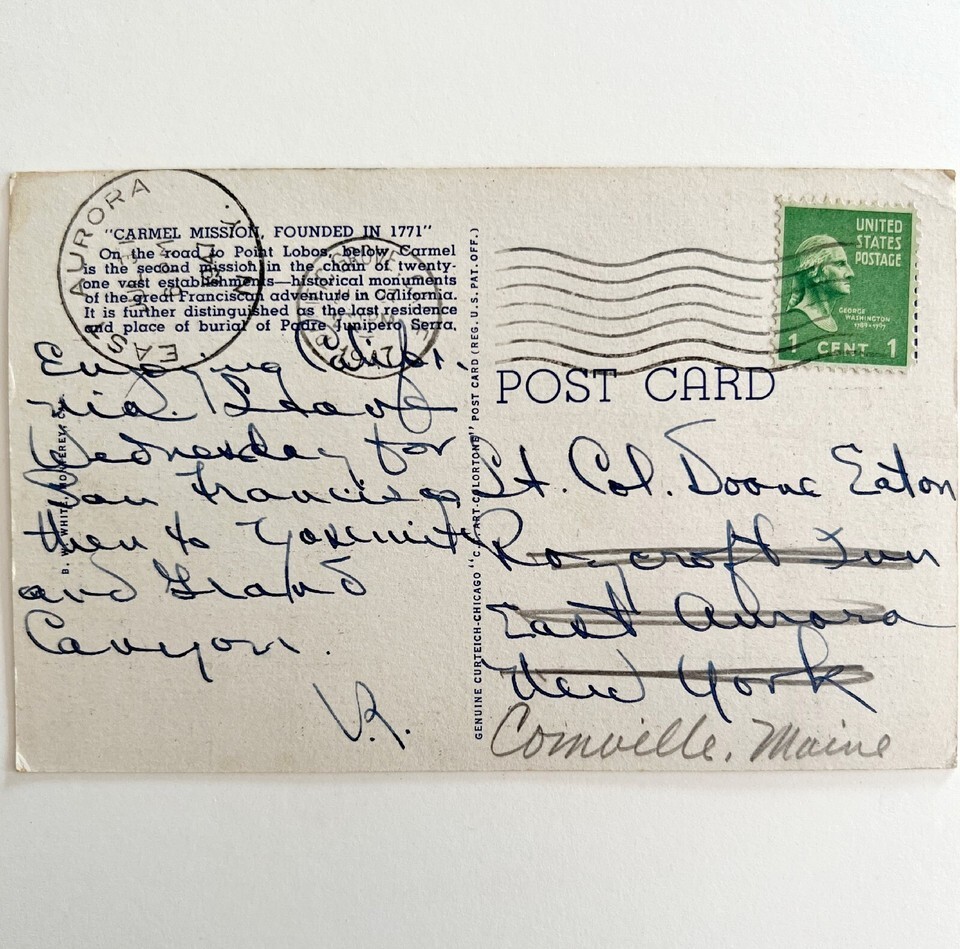 "CARMEL MISSION, FOUNDED IN 1771"
On the road to Point Lobos, below Carmel
is the second mission in the chain of twenty-
one vast establishments—historical monuments
of the great Franciscan adventure in California.
It is further distinguished as the last residence
and place of burial of Padre Junipero Serra.
EAST AURORA N.Y.
1947
Enjoying Califor-
nia. Leave
Wednesday for
San Francisco
then to Yosemite
and Grand
Canyon.
V.R.
B. W. WHITE, MONTEREY, CAL.
GENUINE CURTEICH-CHICAGO "C.T. ART-COLORTONE" POST CARD (REG. U.S. PAT. OFF.)
UNITED
STATES
POSTAGE
GEORGE
WASHINGTON
1789-1797
1 CENT 1
POST CARD
Lt. Col. Doane Eaton
Roycroft Inn
East Aurora
New York
Cornville, Maine